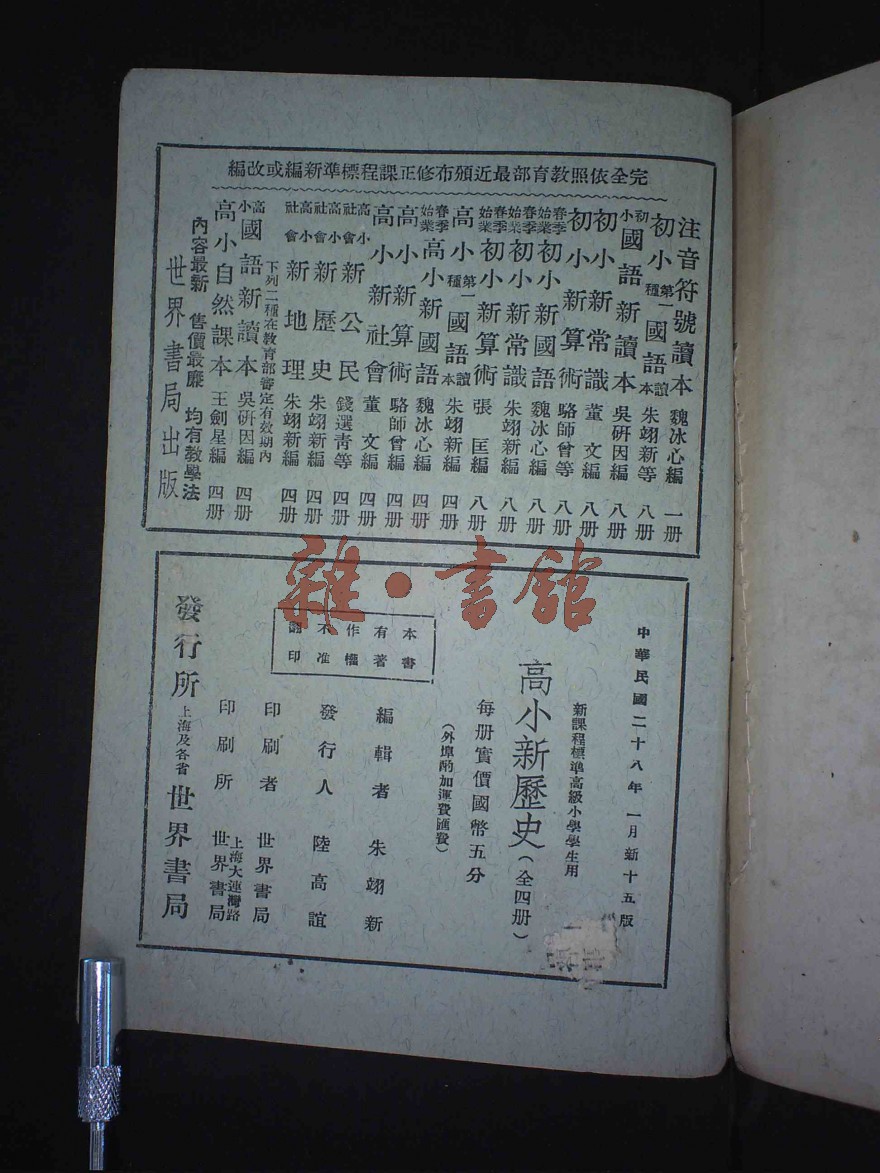 完全依照教育部最近頒布修正課程標準新編或改編
注音符號讀本 魏冰心編 一册
初小 第一種 國語讀本 朱翊新等 八册
初小 國語新讀本 吳研因編 八册
初小新常識 董文編 八册
初小新算術 駱師曾等 八册
春季始業 初小新國語 魏冰心編 八册
春季始業 初小新常識 朱翊新編 八册
春季始業 初小新算術 張匡編 八册
高小 第一種 國語讀本 朱翊新編 四册
春季始業 高小新國語 魏冰心編 四册
高小新算術 駱師曾編 四册
高小新社會 董文編 四册
高小社會 新公民 錢選青等 四册
高小社會 新歷史 朱翊新編 四册
高小社會 新地理 朱翊新編 四册
下列二種在教育部審定有效期內
高小 國語新讀本 吳研因編 四册
高小自然課本 王劍星編 四册
內容最新 售價最廉 均有教學法
世界書局出版
雜·書館
中華民國二十八年一月新十五版
新課程標準高級小學學生用
高小新歷史(全四册)
每册實價國幣五分
(外埠酌加運費匯費)
本書
有著
作權
不准
翻印
編輯者 朱翊新
發行人 陸高誼
印刷者 世界書局
印刷所 上海大連灣路 世界書局
發行所 上海及各省 世界書局